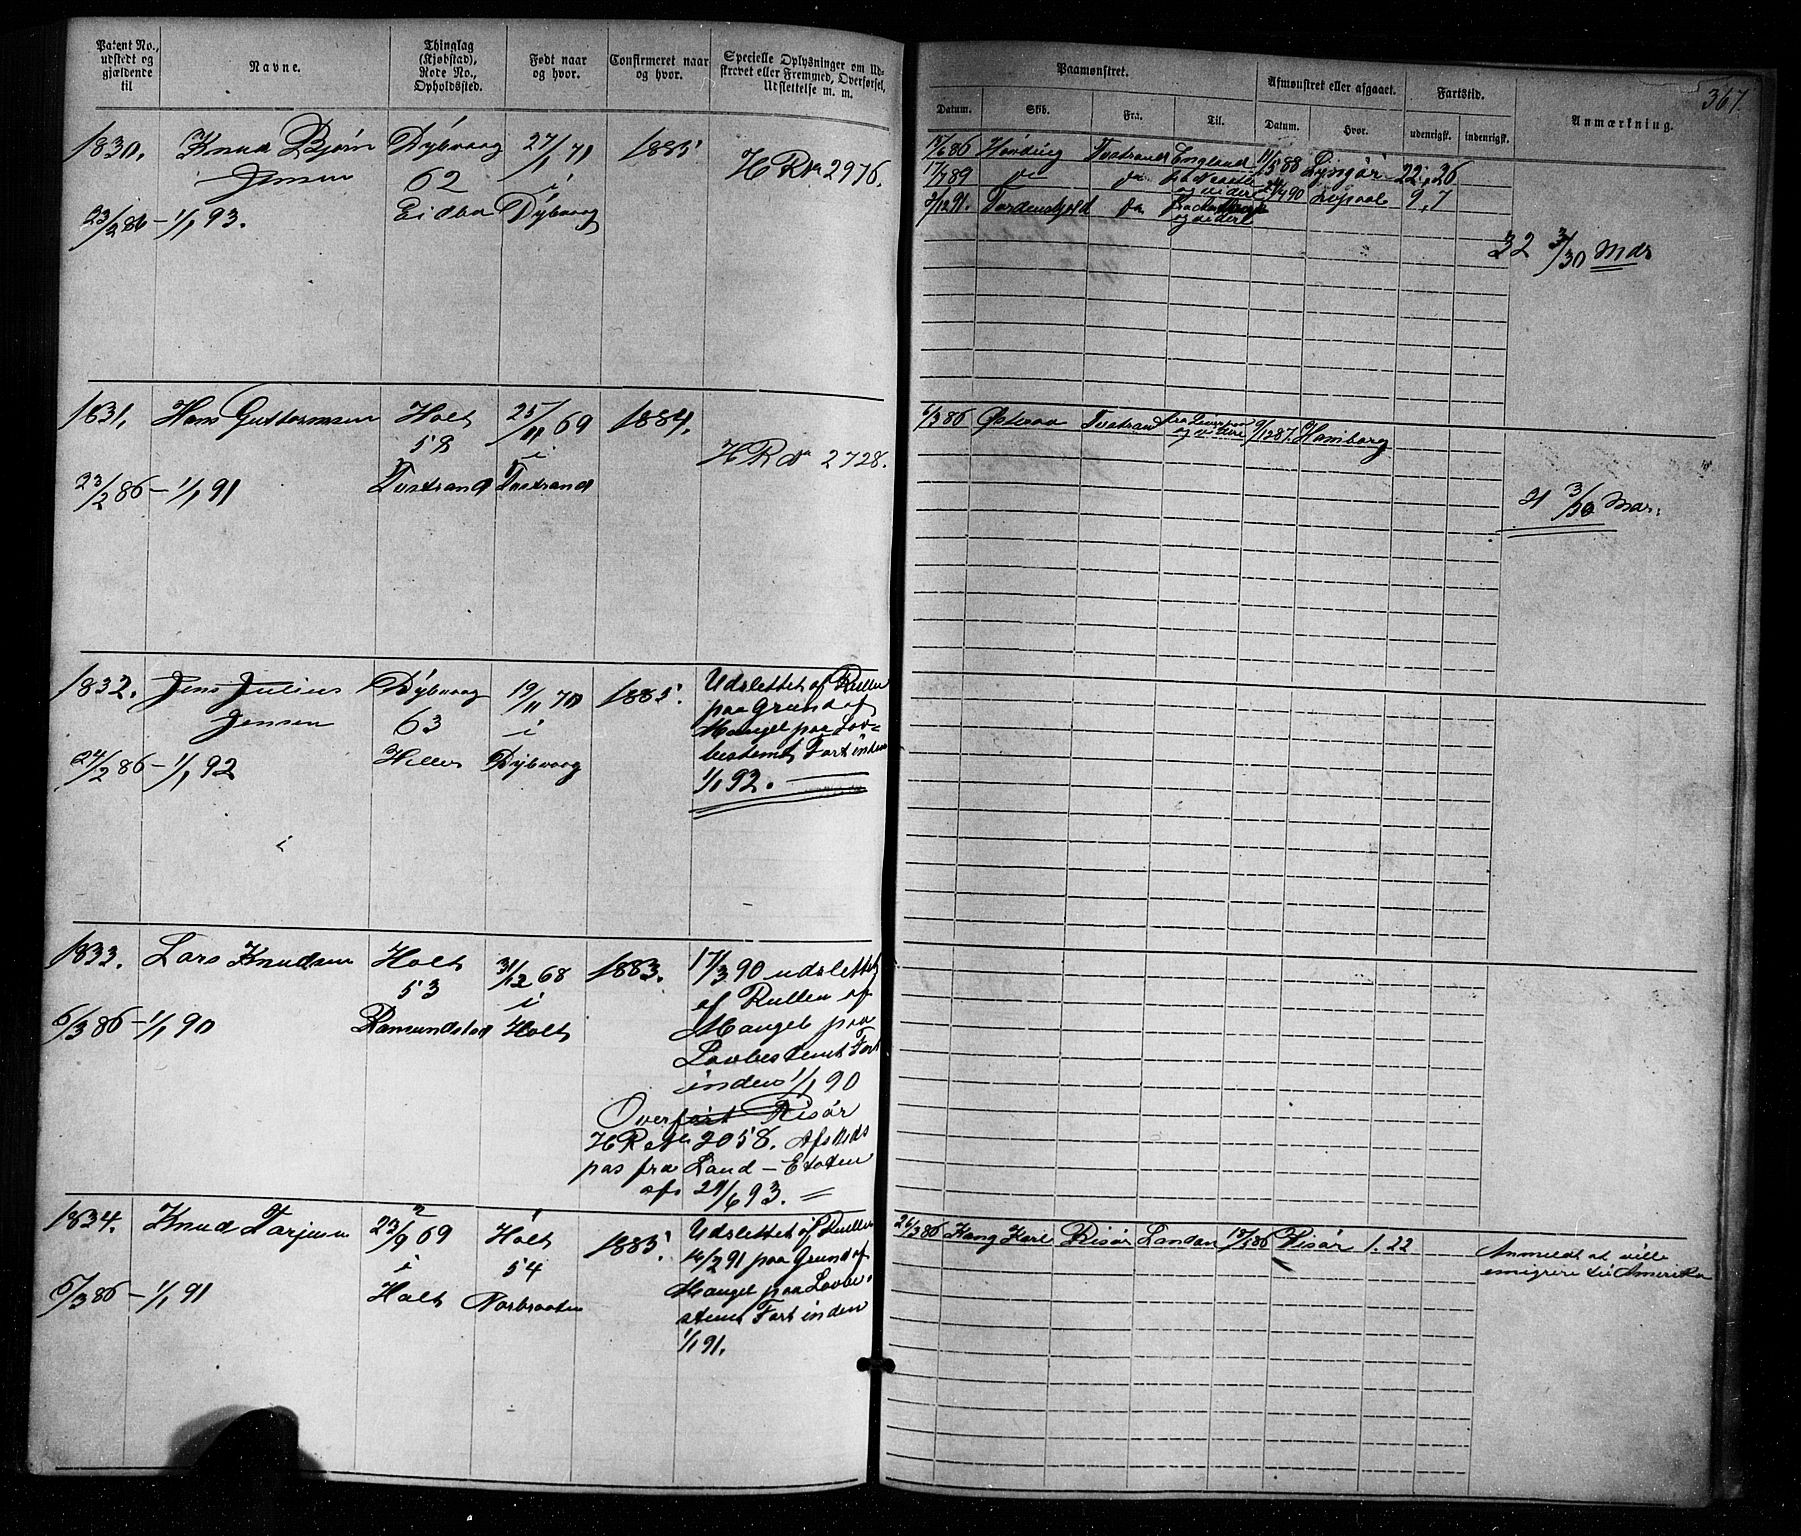 Patent No., udstedt og gjældende til
Navne.
Thinglag (Kjøbstad), Rode No., Opholdssted.
Født naar og hvor.
Confirmeret naar og hvor.
Specielle Oplysninger om Udskrevet eller Fremmed, Overførsel, Udslettelse m. m.
Paamønstret.
Datum.
Skib.
Fra.
Til.
Afmønstret eller afgaaet.
Datum.
Hvor.
Fartstid.
udenrigsk.
indenrigsk.
Anmærkning.
367.
1830. Knud Bjørn Dybvaag 27/1 71 1885
Jensen 62 i
23/2 86 – 1/1 93. Eidbo Dybvaag
H R No 2976.
15/6 86 Tvedestrand England 11/5 88 Lyngör 22, 26
17/7 89 do do og videre 24/4 90 9, 7
2/12 91. Tordenskjold do og videre
32 3/30 Mdr
1831. Hans Guttormsen Holt 25/11 69 1884.
58 i
23/2 86 – 1/1 91 Tvestrand Tvestrand
H R No 2728.
6/3 86 Tvestrand og videre 9/12 87. Hamborg
21 3/30 Mdr.
1832. Jens Julius Dybvaag 19/11 70 1885.
Jensen 63 i
24/2 86 – 1/1 92 Dybvaag
Udslettet af Rullen
paa Grund af
Mangel paa Lov-
bestemt Fart inden
1/1 92.
1833. Lars Knudsen Holt 31/12 68 1883.
53 i
6/3 86 – 1/1 90 Ramundstad Holt
17/3 90 udslettet
af Rullen af
Mangel paa
Lovbestemt Fart
inden 1/1 90
Overført Risör
H R No 2058. Afskeds
pas fra Land – Etaten
af 29/6 93.
1834. Knud Tarjesen 23/9 69 Holt 1885.
i 54
6/3 86 – 1/1 91 Holt
Udslettet af Rullen
14/2 91 paa Grund af
Mangel paa Lovbe-
stemt Fart inden
1/1 91.
26/3 86 Kong Karl Risör London 19/5 86 Risör 1. 22
Anmeldt at ville
emigrere til Amerika